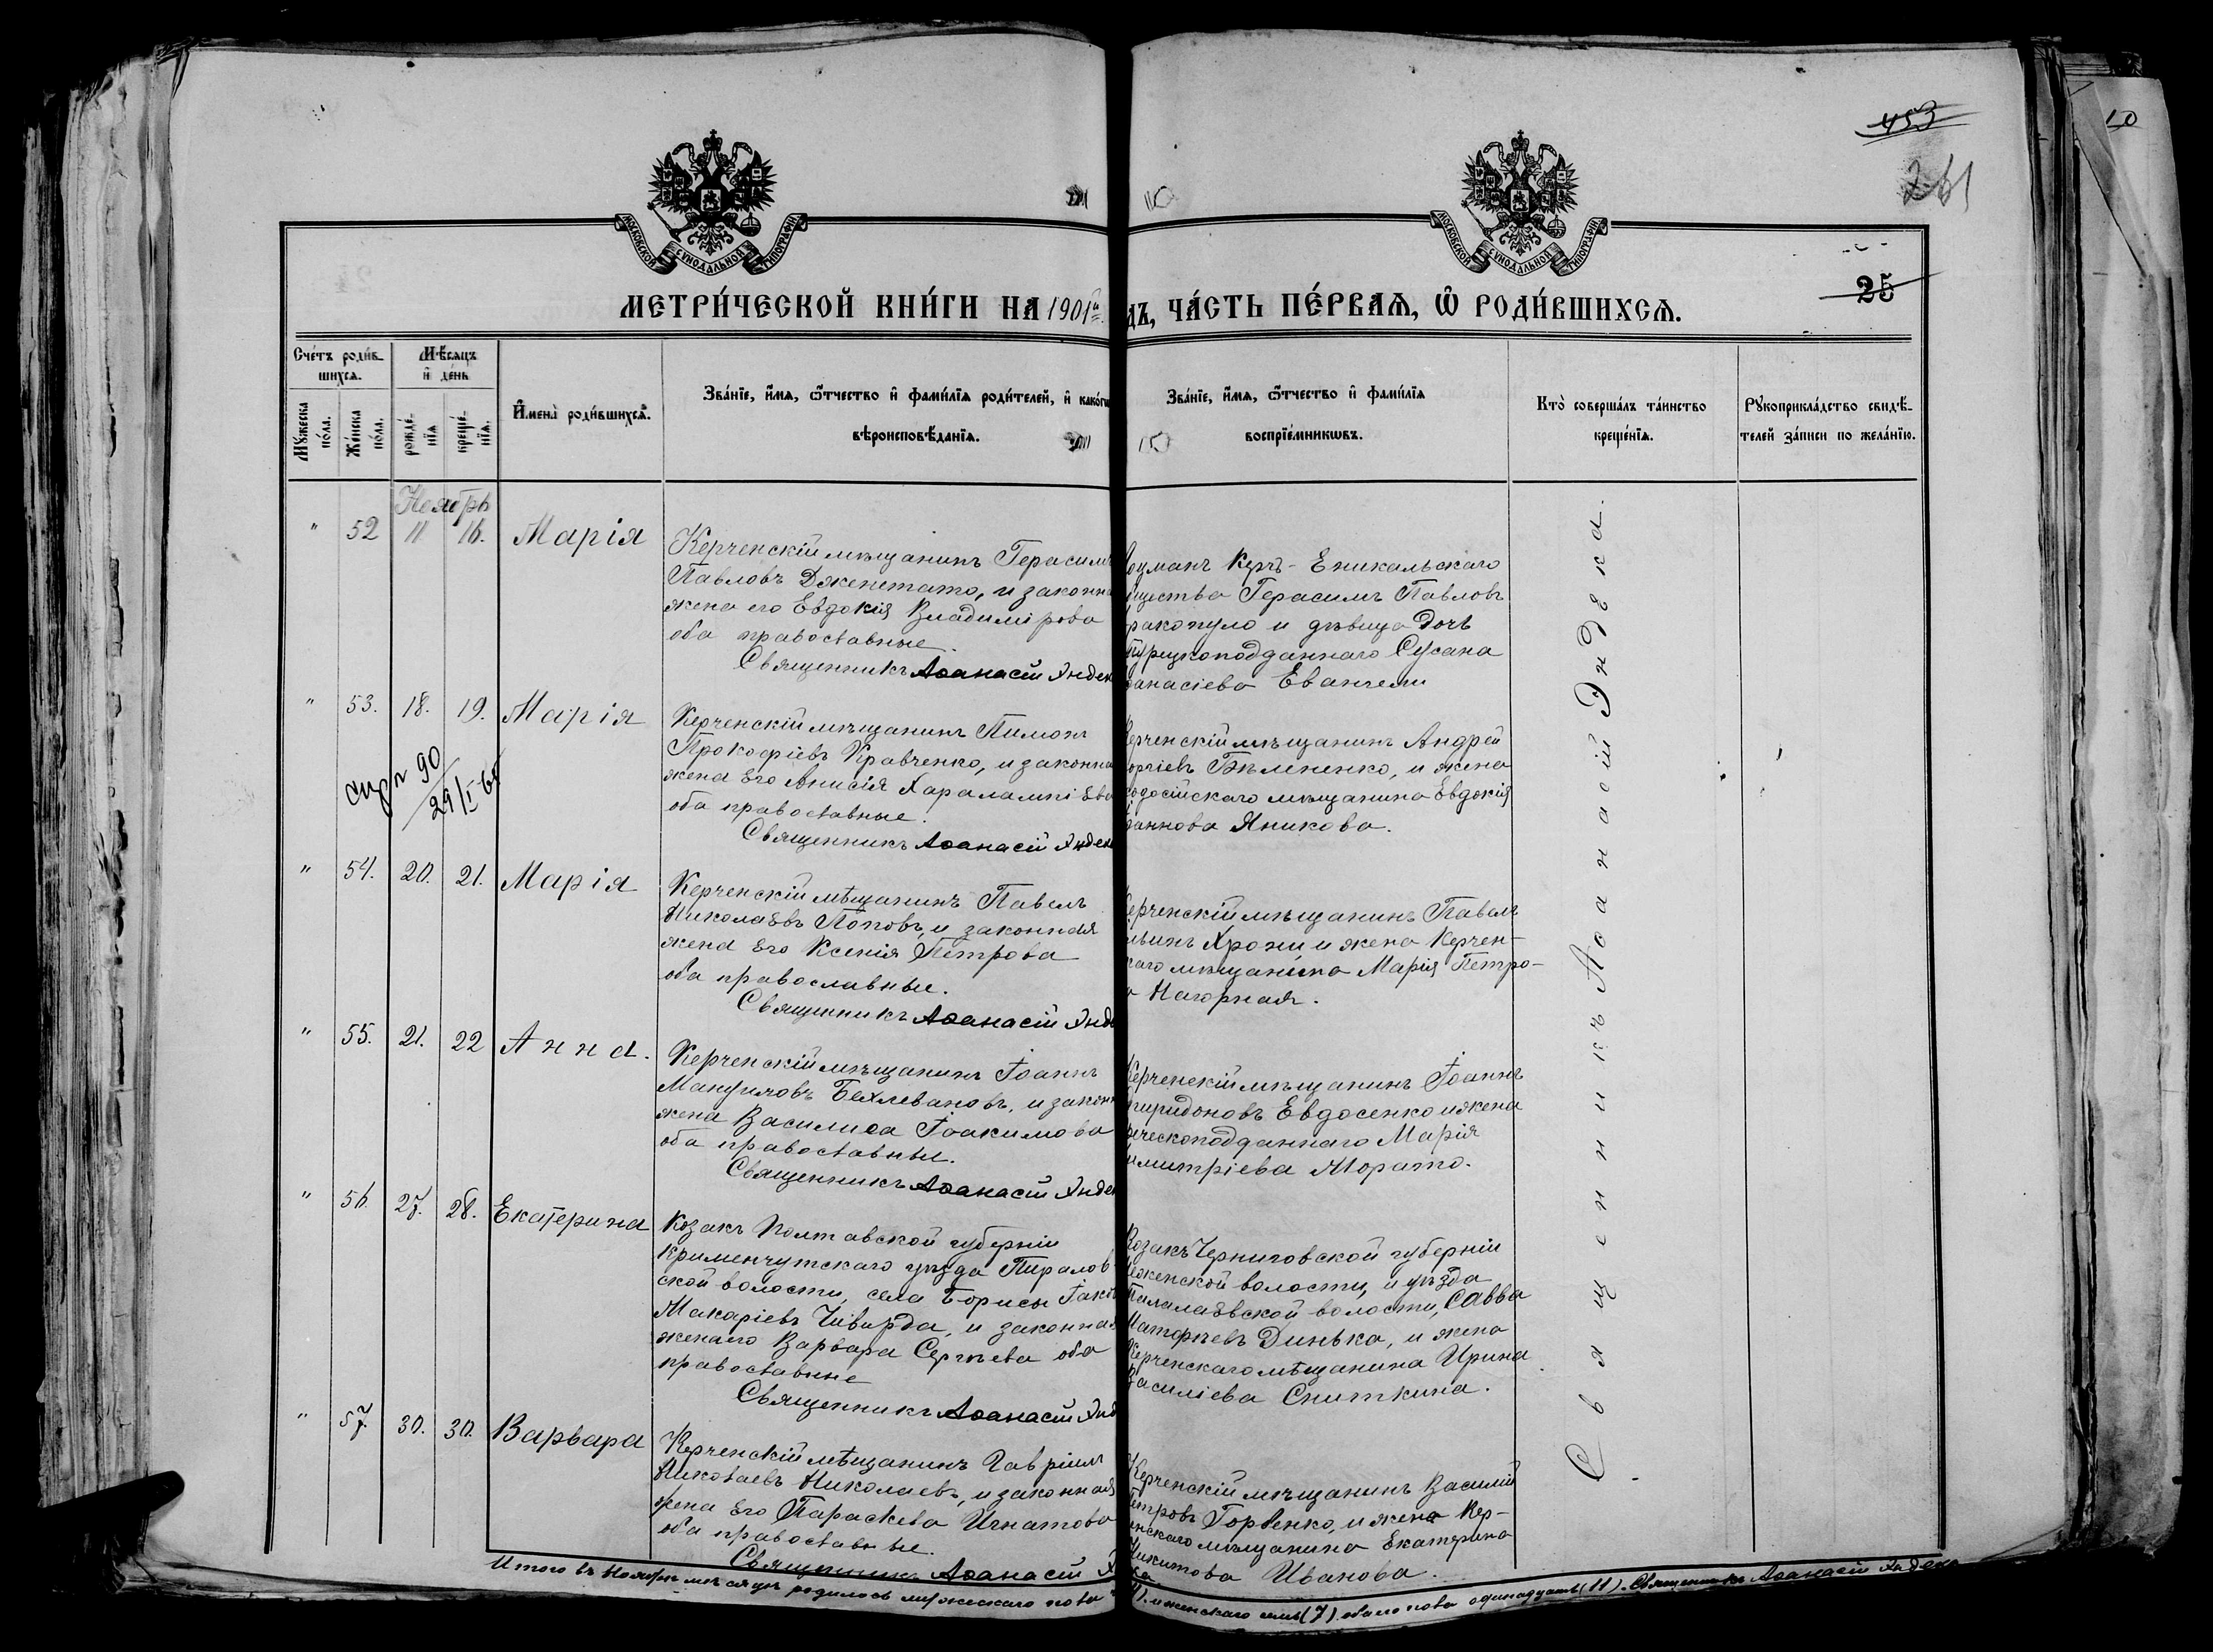 453
261
10
МОСКОВСКОЙ СѴНОДАЛЬНОЙ ТИПОГРАФІИ
МОСКОВСКОЙ СѴНОДАЛЬНОЙ ТИПОГРАФІИ
25
МЕТРИ́ЧЕСКОЙ КНИ́ГИ НА 1901й
дъ, ЧА́СТЬ ПЕ́РВАѦ, Ѿ РОДИ́ВШИХСѦ.
Сче́тъ роди́вшихсѧ.
Мꙋ́жеска по́ла.
Же́нска по́ла.
Мѣ́сѧцъ и҆ де́нь
рожде́нїѧ
креще́нїѧ.
И҆мена̀ роди́вшихсѧ.
Зва́нїе, и҆́мѧ, ѻ҆́тчество и҆ фами́лїѧ роди́телей, и҆ како́гѡ
вѣроисповѣ́данїѧ.
Зва́нїе, и҆́мѧ, ѻ҆́тчество и҆ фами́лїѧ
воспрїе́мникѡвъ.
Кто̀ соверша́лъ та́инство
креще́нїѧ.
Рꙋкоприкла́дство свидѣ́-
телей за́писи по жела́нїю.
Ноябрь
" 52 11 16. Марія
Керченскій мѣщанинъ Герасимъ
Павловъ Дженетато, и законна
жена его Евдокія Владимірова
оба православные.
Священникъ Аѳанасій Энде
Керч-Еникальскаго
бщества Герасимъ Павловъ
ракопуло и дѣвица дочь
турецкоподданнаго Сусана
ѳанасіева Евангели
" 53. 18. 19. Марія
90
29/I-65
Керченскій мѣщанинъ Пимонъ
Прокофіевъ Кравченко, и законна
жена Его Анисія Харалампіева
оба православные.
Священникъ Аѳанасій Энде
ерченскій мѣщанинъ Андрей
оргіевъ Бѣлененко, и жена
еодосійскаго мѣщанина Евдокія
оаннова Яникова.
" 54. 20. 21. Марія
Керченскій мѣщанинъ Павелъ
Николаевъ Поповъ, и законная
жена Его Ксенія Петрова
оба православные.
Священникъ Аѳанасій Энде
ерченскій мѣщанинъ Павелъ
Хрони и жена Керчен-
каго мѣщанина Марія Петро-
а Нагорная.
" 55. 21. 22 Анна.
Керченскій мѣщанинъ Іоаннъ
Мануиловъ Бехлевановъ, и законн
жена Василиса Іоакимова
оба православные.
Священникъ Аѳанасій Энде
Керченскій мѣщанинъ Іоаннъ
пиридоновъ Евдосенко и жена
реческоподданнаго Марія
имитріева Морато.
" 56. 27. 28. Екатерина
Козакъ Полтавской губерніи
Кременчугскаго уѣзда
ской волости, села Борисы Іако
Макаріевъ и законная
жена его Варвара Сергѣева оба
православные
Священникъ Аѳанасій Энд
Козакъ Черниговской губерніи
ѣженской волости, и уѣзда
Талалаевской волости, Савва
Матфѣевъ Динька, и жена
Керченскаго мѣщанина Ирина
Василіева Сниткина.
" 57. 30. 30. Варвара
Керченскій мѣщанинъ Гавріилъ
Николаевъ Николаевъ, и законная
жена Его Параскева Игнатова
оба православные.
Священникъ Аѳанасій Э
Керченскій мѣщанинъ Василій
Петровъ Горбенко, и жена Кер-
енскаго мѣщанина Екатерина
Никитова Иванова.
Священникъ Аѳанасій Эндека.
Итого въ Ноябрѣ мѣсяцѣ родилось мужескаго пола
и женскаго семь (7) обоего пола одинадцать (11). Священникъ Аѳанасій Эндека